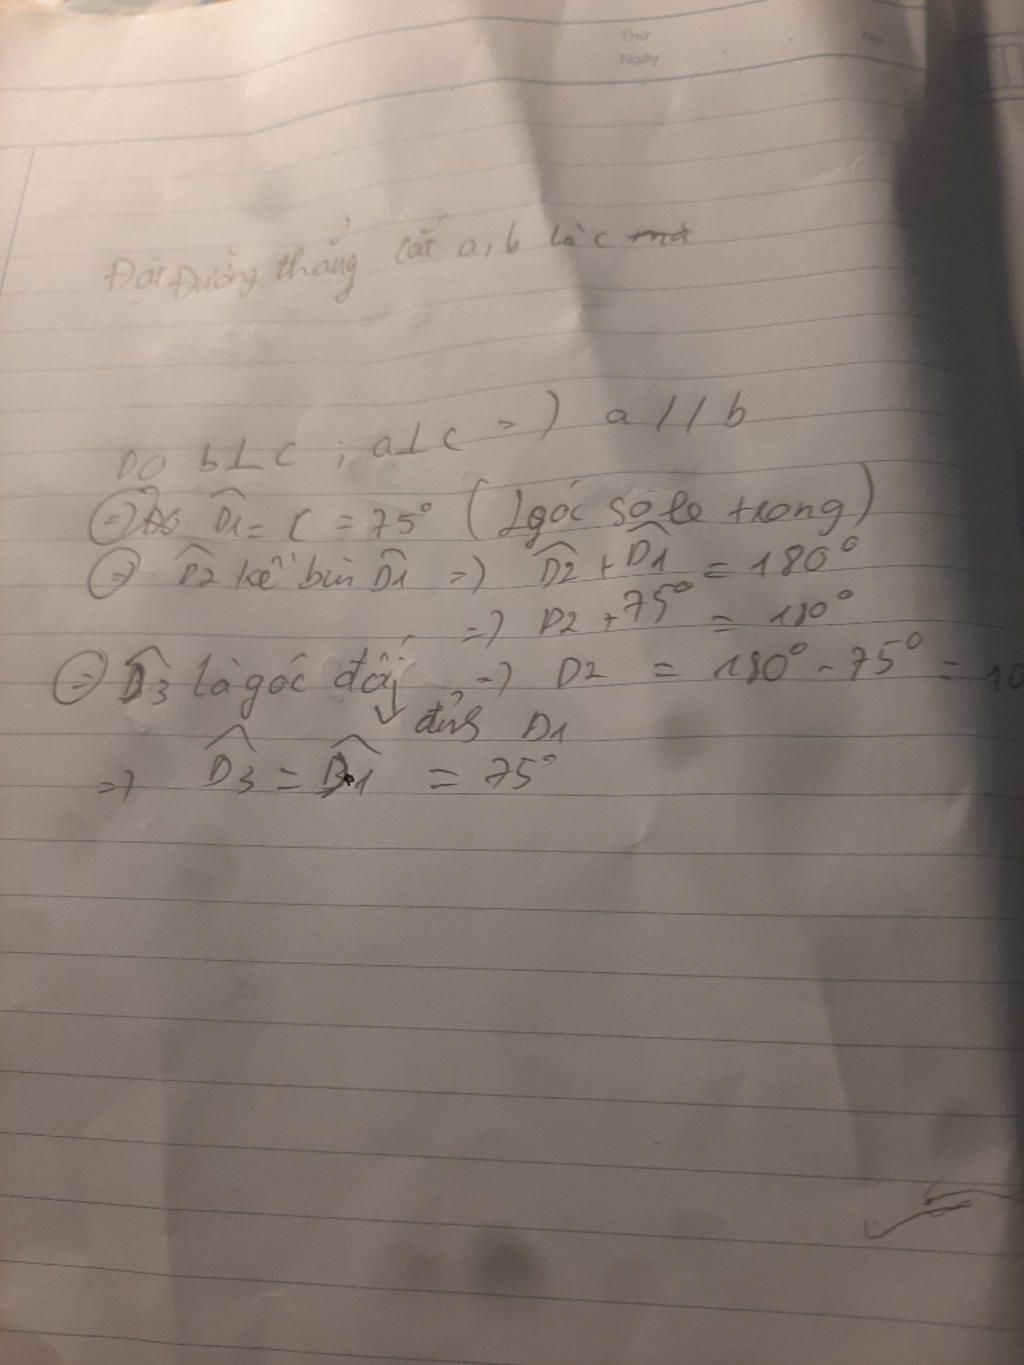 Thứ No
Ngày
Đặt Đường thẳng cắt a, b là c
Do b⊥c ; a⊥c => a // b
=> D̂1 = C = 75° ( 2 góc so le trong )
=> D̂2 kề bù D̂1 => D̂2 + D̂1 = 180°
=> D2 + 75° = 180°
=> D̂3 là góc đối => D2 = 180° - 75° = 10
đỉnh D1
=> D̂3 = D̂1 = 75°